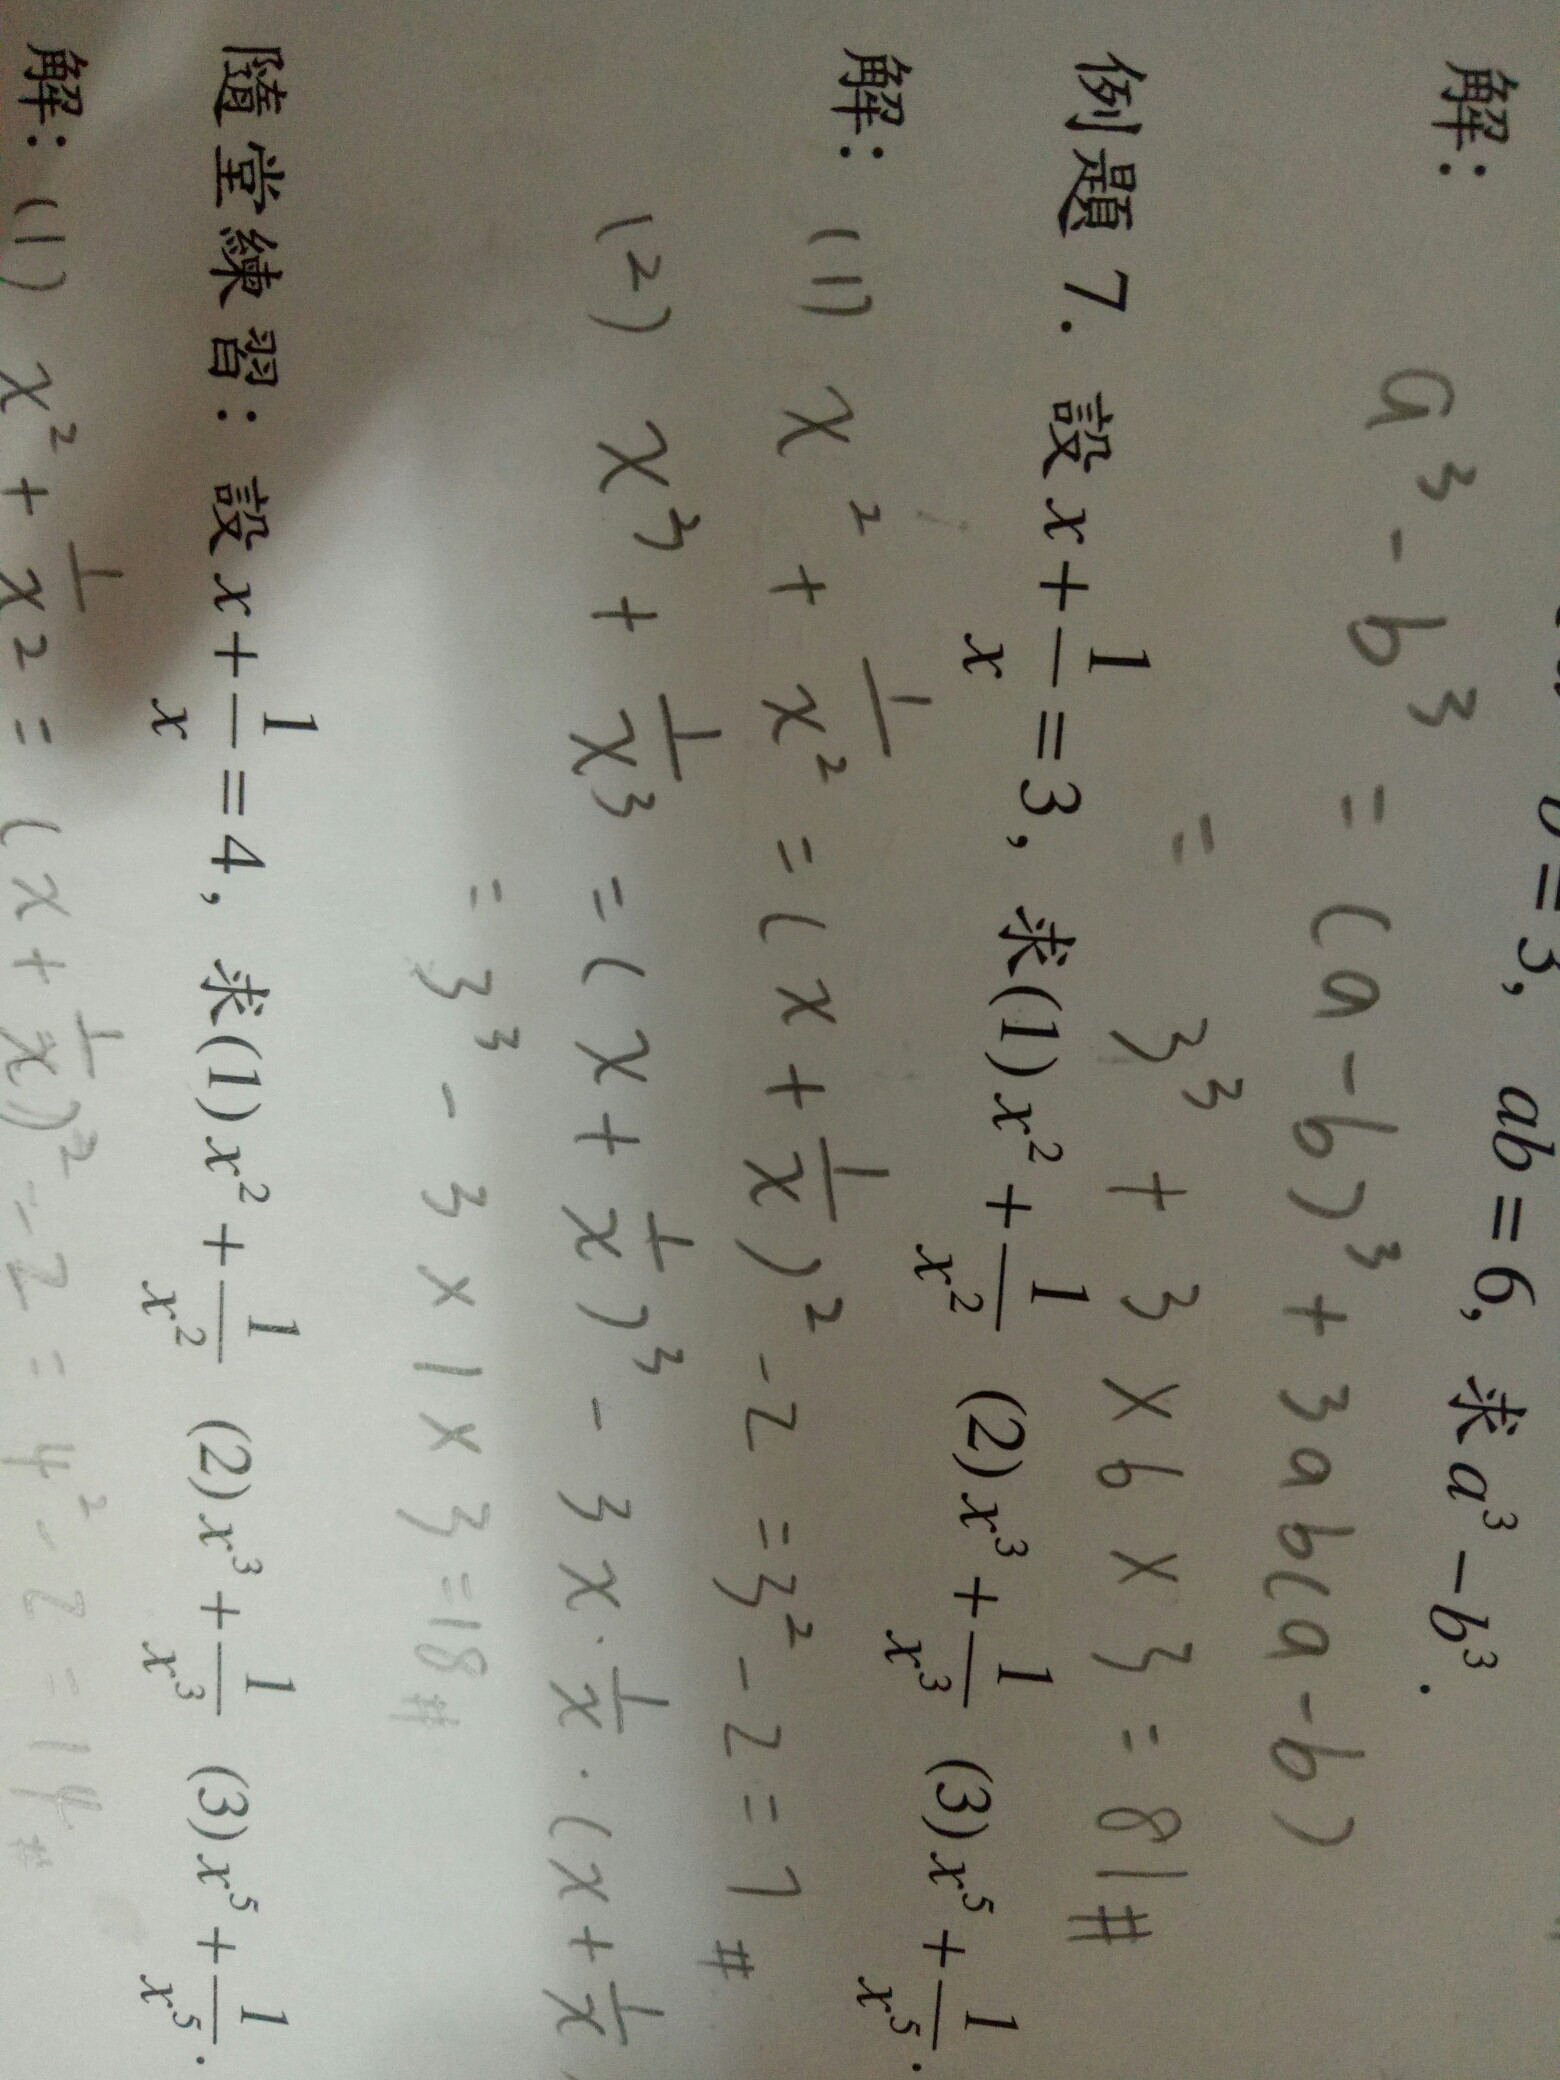 b=3, ab=6, 求a³-b³.
解：
a³-b³ = (a-b)³+3ab(a-b)
= 3³+3×6×3=81#
例題7. 設x+1/x=3, 求(1)x²+1/x² (2)x³+1/x³ (3)x⁵+1/x⁵.
解： (1) x²+1/x²=(x+1/x)²-2=3²-2=7#
(2) x³+1/x³=(x+1/x)³-3x·1/x·(x+1/x)
=3³-3×1×3=18#
隨堂練習：設x+1/x=4, 求(1)x²+1/x² (2)x³+1/x³ (3)x⁵+1/x⁵.
解：(1) x²+1/x²=(x+1/x)²-2=4²-2=14#